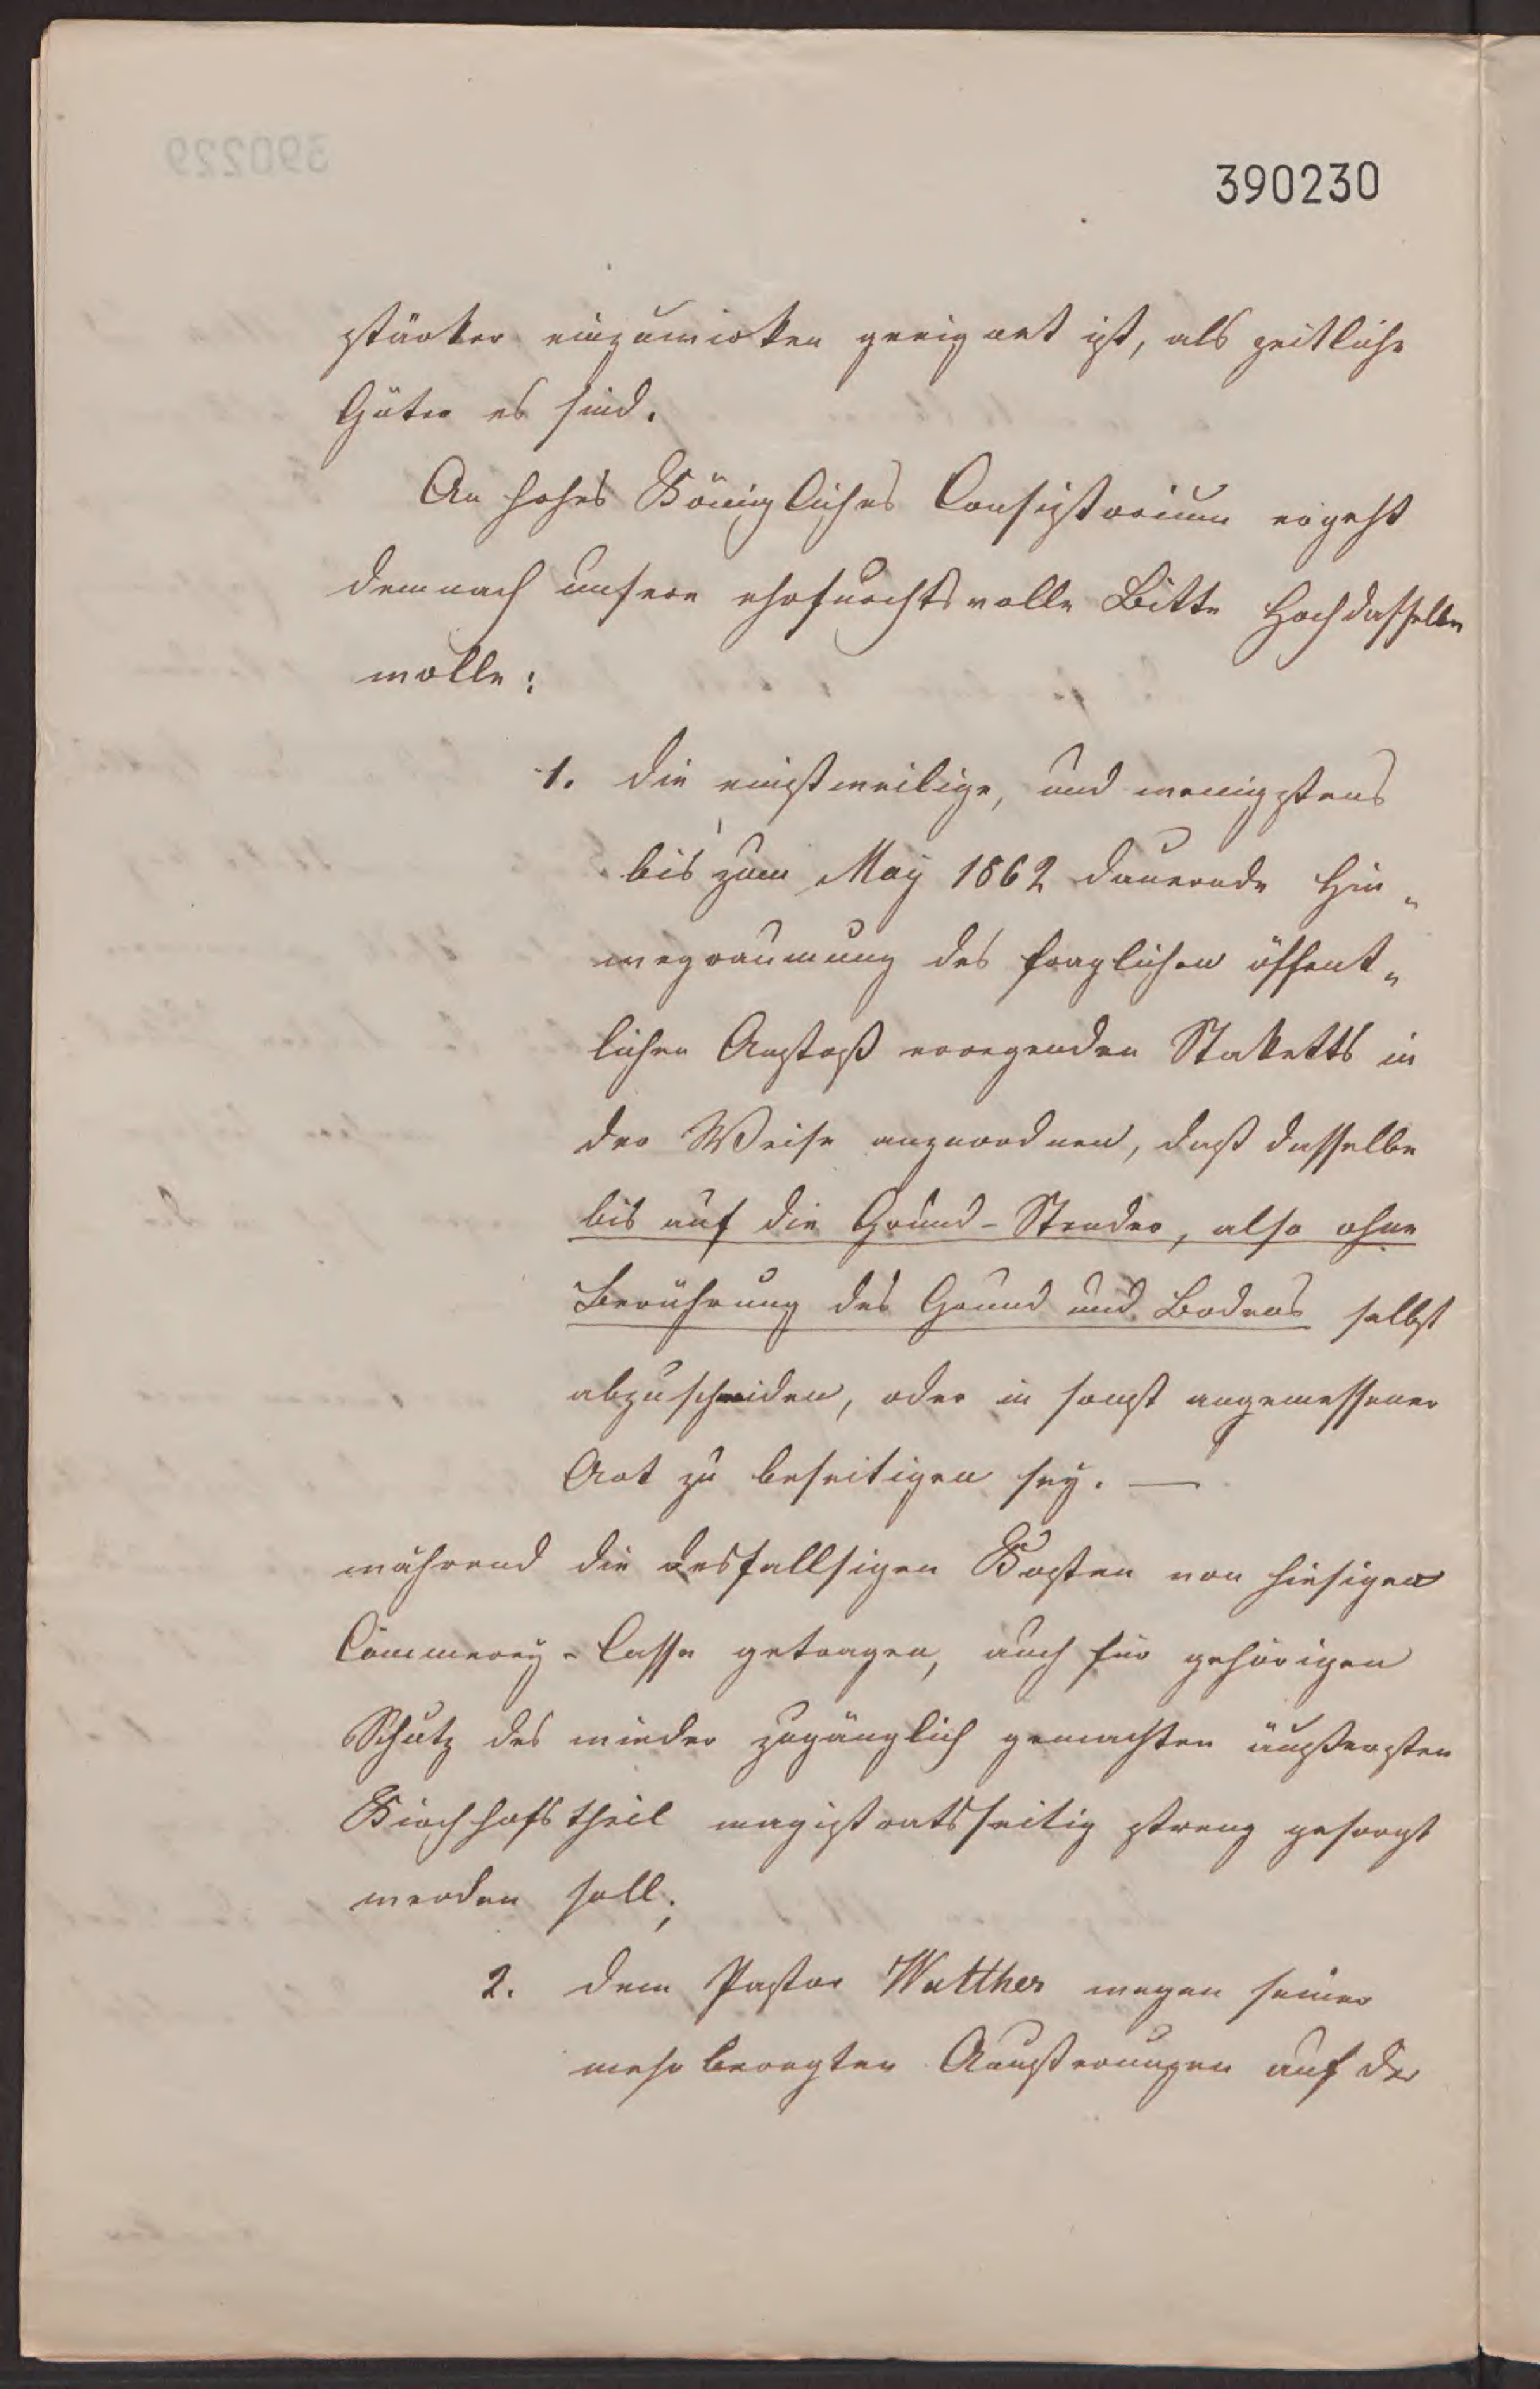 390230
stärker einzuwirken geeignet ist, als zeitliche
Güter es sind.
An hohes Königliches Consistorium ergeht
demnach unsere ehrfurchtsvolle Bitte Hochdasselbe
wolle:
1. die einstweilige, und wenigstens
bis zum May 1862 dauernde Hin„
wegräumung des fraglichen öffent„
lichen Anstoß erregenden Staketts in
der Weise anzuordnen, daß dasselbe
bis auf die Grund-Stender, also ohne
Berührung des Grund und Bodens selbst
abzuschneiden, oder in sonst angemessener
Art zu beseitigen sey. —
während die desfallsigen Kosten von hiesiger
Cämmerey-Casse getragen, auch für gehörigen
Schutz des wieder zugänglich gemachten äußersten
Kirchhofstheil magistratsseitig streng gesorgt
werden soll;
2. dem Pastor Walther wegen seiner
mehr beregten Aeußerungen auf der